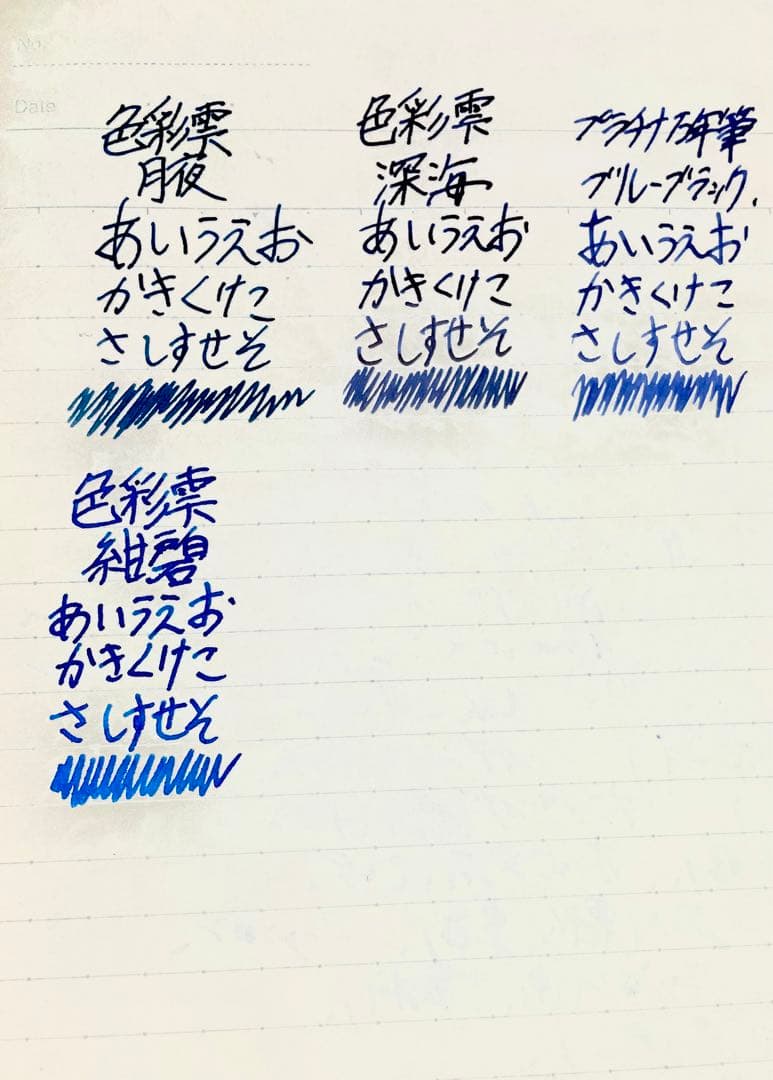 No.
Date
色彩雫
月夜
あいうえお
かきくけこ
さしすせそ
色彩雫
深海
あいうえお
かきくけこ
さしすせそ
プラチナ万年筆
ブルーブラック.
あいうえお
かきくけこ
さしすせそ
色彩雫
紺碧
あいうえお
かきくけこ
さしすせそ